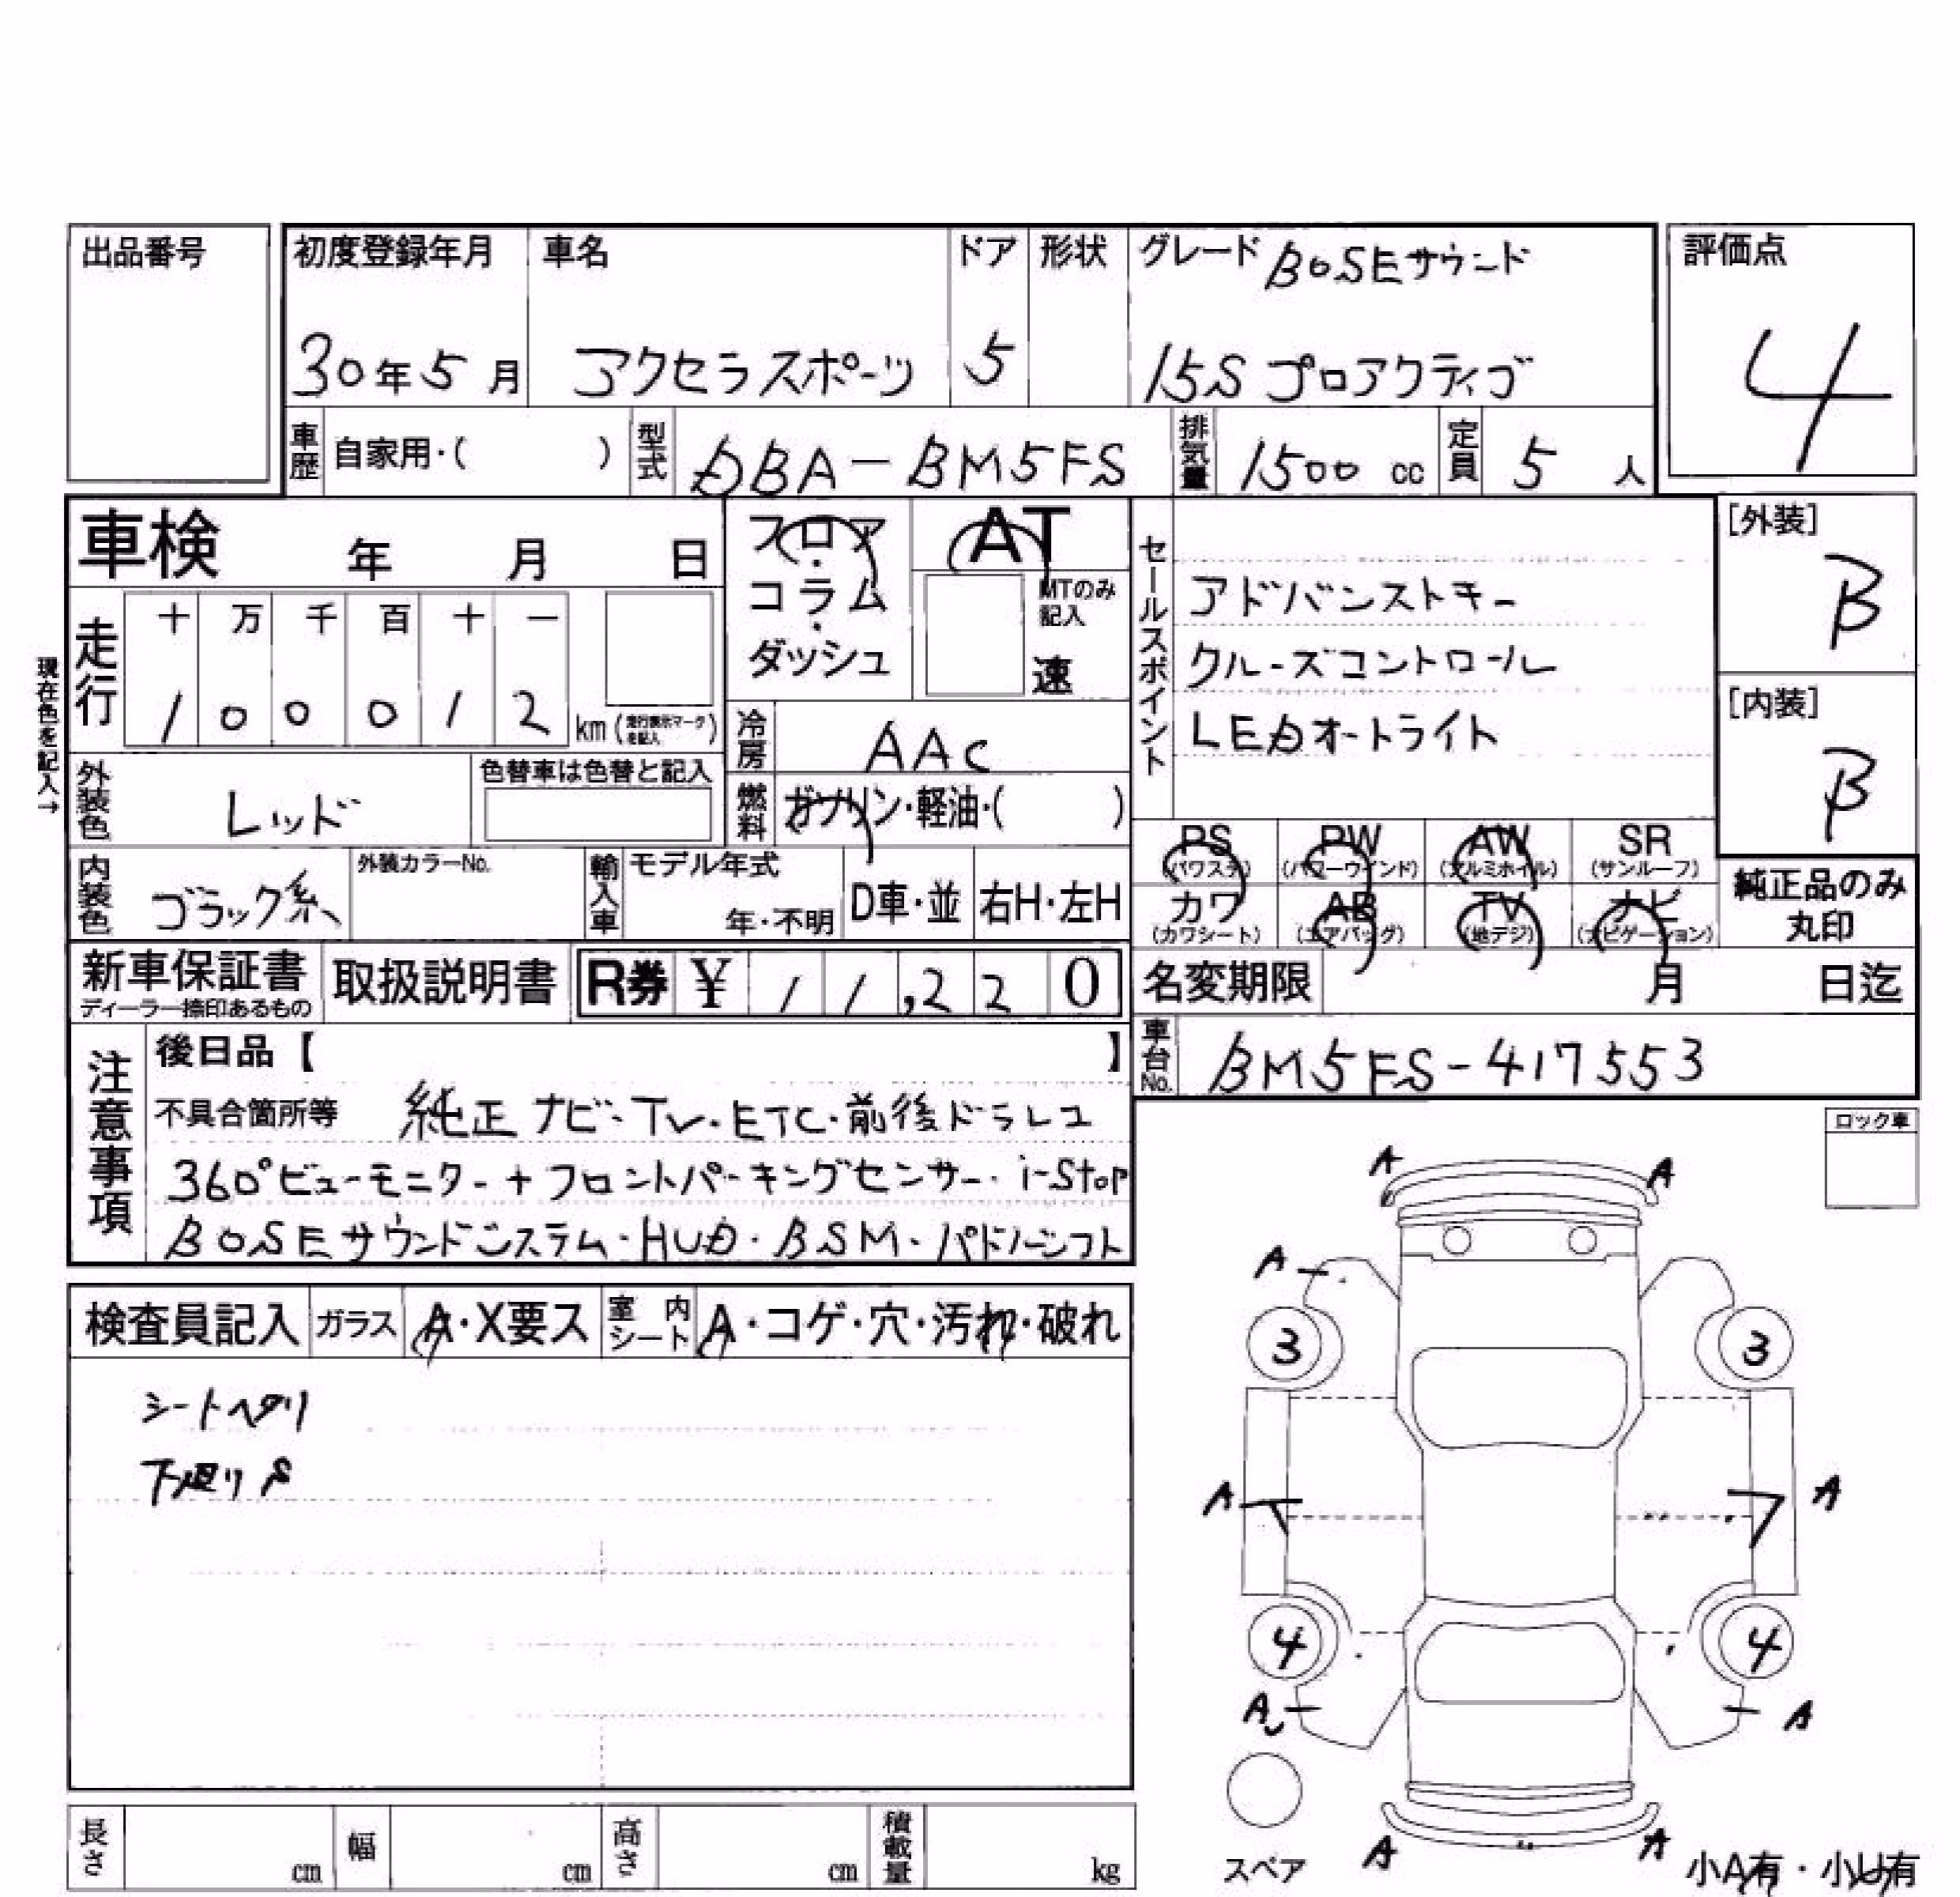 出品番号
初度登録年月 車名 ドア 形状 グレード BOSEサウンド 評価点
30年5月 アクセラスポーツ 5 15Sプロアクティブ 4
車歴 自家用・( ) 型式 DBA-BM5FS 排気量 1500 cc 定員 5 人
車検 年 月 日
フロア・コラム・ダッシュ
AT
MTのみ記入
速
セールスポイント
アドバンストキー
クルーズコントロール
LEDオートライト
[外装]
B
[内装]
B
現在色を記入→
走行 十 万 千 百 十 一
1 0 0 0 1 2 km (走行表示マークを記入)
冷房 AAC
外装色 レッド 色替車は色替と記入
燃料 ガソリン・軽油・( )
PS PW AW SR
(パワステ) (パワーウインド) (アルミホイル) (サンルーフ)
カワ AB TV ナビ
(カワシート) (エアバッグ) (地デジ) (ナビゲーション)
純正品のみ
丸印
内装色 ブラック系 外装カラーNo. 輸入車 モデル年式 年・不明 D車・並 右H・左H
新車保証書 取扱説明書 R券 ¥ 11,220
ディーラー捺印あるもの
名変期限 月 日迄
車台No. BM5FS-417553
注意事項
後日品【 】
不具合箇所等 純正ナビ・TV・ETC・前後ドラレコ
360°ビューモニター+フロントパーキングセンサー・i-Stop
BOSEサウンドシステム・HUD・BSM・パドルシフト
ロック車
検査員記入 ガラス A・X要ス 室内シート A・コゲ・穴・汚れ・破れ
シートヘタリ
下廻りS
A A
A
3 3
A A
4 4
A A
スペア
A A
小A有・小U有
長さ cm 幅 cm 高さ cm 積載量 kg